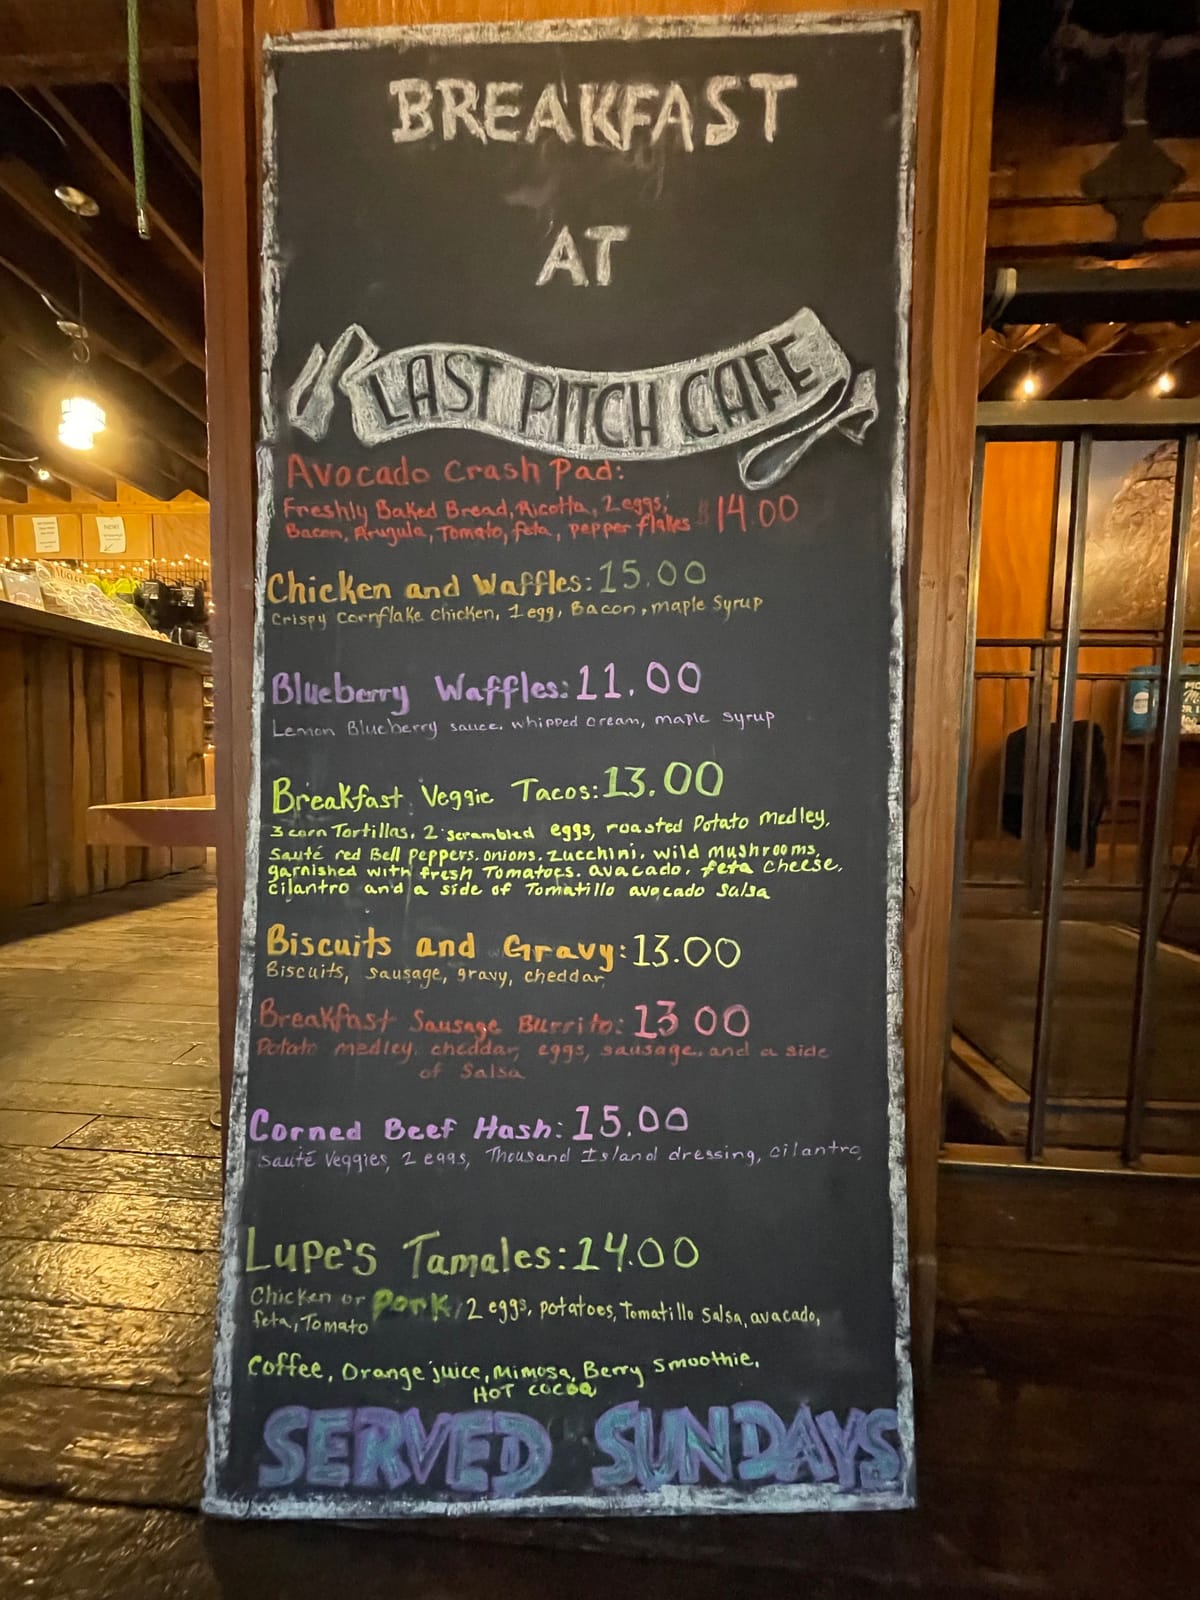 BREAKFAST
AT
LAST PITCH CAFE
Avocado Crash Pad:
Freshly Baked Bread, Ricotta, 2 eggs,
Bacon, Arugula, Tomato, feta, pepper flakes $14.00
Chicken and Waffles: 15.00
Crispy Cornflake Chicken, 1 egg, Bacon, maple Syrup
Blueberry Waffles: 11.00
Lemon Blueberry sauce, whipped cream, maple syrup
Breakfast Veggie Tacos: 13.00
3 corn Tortillas, 2 scrambled eggs, roasted Potato medley,
sauté red Bell Peppers, onions, zucchini, wild mushrooms,
garnished with fresh Tomatoes, avacado, feta cheese,
cilantro and a side of Tomatillo avocado Salsa
Biscuits and Gravy: 13.00
Biscuits, sausage, gravy, cheddar
Breakfast Sausage Burrito: 13 00
Potato medley, cheddar, eggs, sausage, and a side
of Salsa
Corned Beef Hash: 15.00
sauté Veggies, 2 eggs, Thousand Island dressing, cilantro,
Lupe's Tamales: 14.00
Chicken or Pork, 2 eggs, potatoes, Tomatillo Salsa, avacado,
feta, Tomato
Coffee, Orange juice, Mimosa, Berry Smoothie,
HOT COCOA
SERVED SUNDAYS